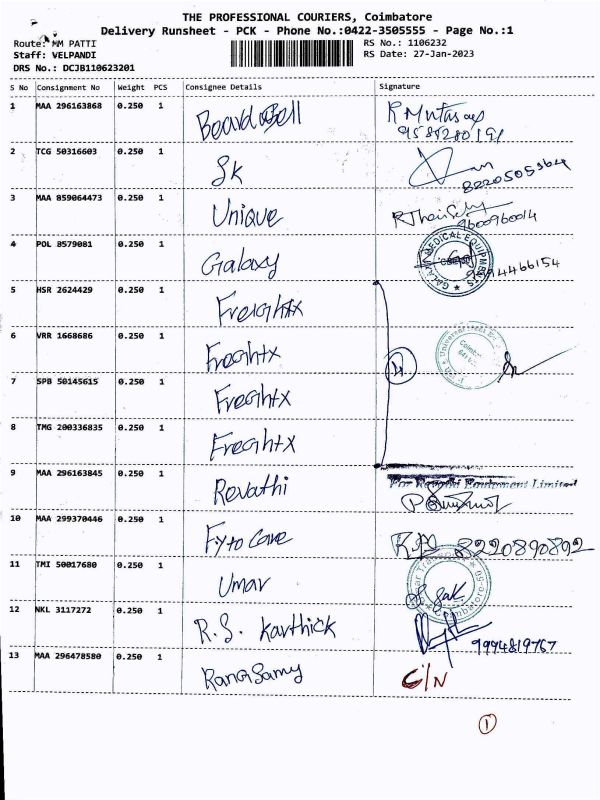 THE PROFESSIONAL COURIERS, Coimbatore
Delivery Runsheet - PCK - Phone No.:0422-3505555 - Page No.:1
Route: MM PATTI
RS No.: 1106232
Staff: VELPANDI
RS Date: 27-Jan-2023
DRS No.: DCJB110623201
S No Consignment No Weight PCS Consignee Details Signature
1 MAA 296163868 0.250 1
9589280191
2 TCG 50316603 0.250 1 SK
8220505364
3 MAA 859064473 0.250 1 Unique
9600960014
4 POL 8579081 0.250 1 Galaxy MEDICAL EQUIPMENTS
9994466154
5 HSR 2624429 0.250 1 Freightx
6 VRR 1668686 0.250 1 Freightx
4
7 SPB 50145615 0.250 1 Freightx
8 TMG 200336835 0.250 1 Freightx
9 MAA 296163845 0.250 1 Revathi For Revathi Equipment Limited
10 MAA 299370446 0.250 1 Fyto Care 8220890892
11 TMI 50017680 0.250 1 Umar
12 NKL 3117272 0.250 1 R.S. Karthick
9994819767
13 MAA 296478580 0.250 1 RangaSamy C/N
1